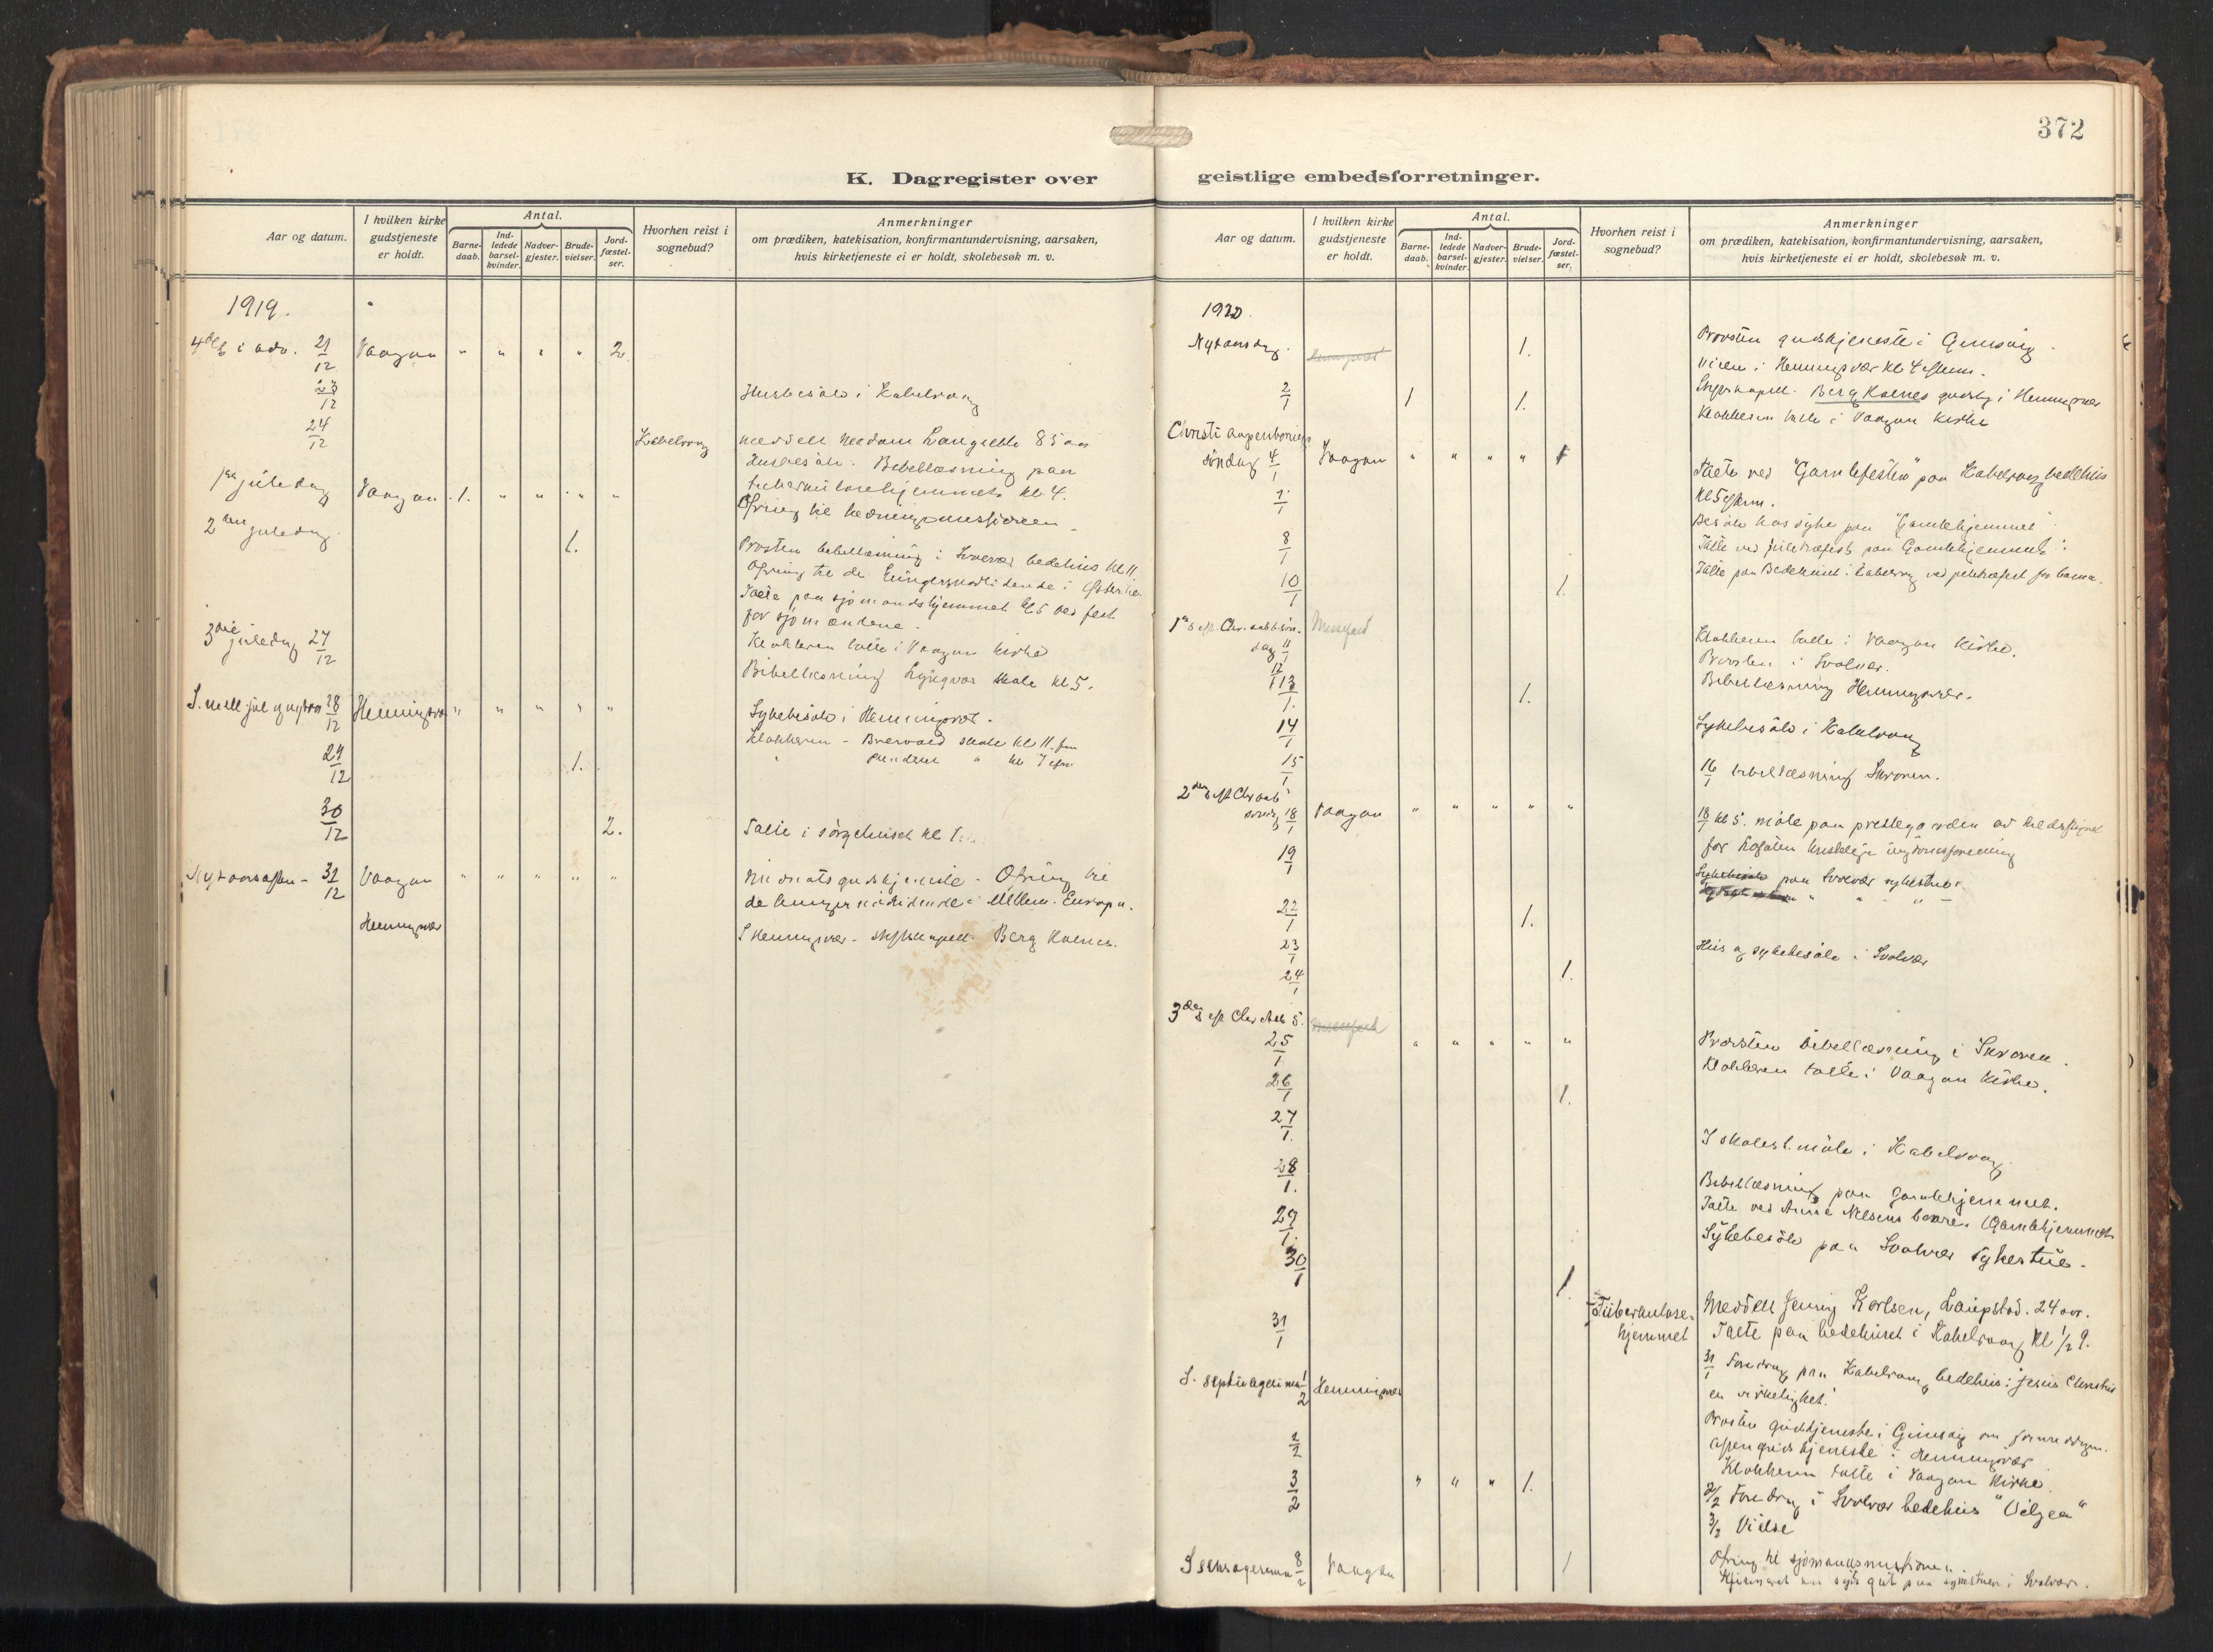 372
K. Dagregister over geistlige embedsforretninger.
Aar og datum.
I hvilken kirke gudstjeneste er holdt.
Antal.
Barne-daab.
Ind-ledede barsel-kvinder.
Nadver-gjester.
Brude-vielser.
Jord-fæstel-ser.
Hvorhen reist i sognebud?
Anmerkninger
om prædiken, katekisation, konfirmantundervisning, aarsaken,
hvis kirketjeneste ei er holdt, skolebesøk m. v.
1919.
4de s i adv. 21/12 Vaagan " " " " 2.
23/12 Husbesök i Kabelvaag
24/12 Kabelvaag Meddelt Madam 85 aar
Husbesök. Bibellæsning paa
tuberkulosehjemmet kl 4.
1ste juledag Vaagan 1. " " " "
Ofring til hedningemissionen
2den juledag 1.
Prosten bibellæsning i Svolvær bedehus kl 11.
Ofring til de hungersnødlidende i
Talte paa sjømandshjemmet kl 5 ved fest
for sjømændene.
3die juledag 27/12 Klokkeren talte i Vaagan kirke
Bibellæsning skole kl 5.
S. mell jul og nytaar 28/12 Henningsvær " " " " "
Sykebesök i Henningsvær.
Klokkeren - skole kl 11 fm
" " kl 7 efm
29/12 1.
30/12 2. Talte i sörgehuset kl 1
Nytaarsaften - 31/12 Vaagan " " " " "
Midnatsgudstjeneste - Ofring til
de hungersnödlidende i Mellem-Europa.
Henningsvær I Henningsvær - stiftskapell. Berg Kornes.
Aar og datum.
I hvilken kirke gudstjeneste er holdt.
Antal.
Barne-daab.
Ind-ledede barsel-kvinder.
Nadver-gjester.
Brude-vielser.
Jord-fæstel-ser.
Hvorhen reist i sognebud?
Anmerkninger
om prædiken, katekisation, konfirmantundervisning, aarsaken,
hvis kirketjeneste ei er holdt, skolebesøk m. v.
1920.
Nytaarsdag. 1.
Provsten gudstjeneste i Gimsöig.
i Henningsvær kl 4 eftem.
2/1 1 1. Stiftskapell. Berg Kornes gudstj i Henningsvær
Klokkeren talte i Vaagan kirke
Christi aapenbarings
söndag 4/1 Vaagan " " " "
Talte ved "Gamlefesten" paa Kabelvaag bedehus
kl 5 eftem.
7/1 Besök hos syke paa "Gamlehjemmet"
8/1 Talte ved juletræfest paa Gamlehjemmet
10/1 1. Talte paa Bedehuset i Kabelvaag ved juletræfest for barna.
1ste s. eft. Chr. aab. sön-
dag 11/1 Messefald
Klokkeren talte i Vaagan kirke.
Provsten i Svolvær.
12/1
13/1. 1. Bibellæsning Henningsvær.
14/1 Sykebesök i Kabelvaag
15/1 16/1 bibellæsning Skroven.
2den s eft Chr aab
sönd 18/1 Vaagan " " " " "
18/1 kl 5. möte paa prestegaarden
for Lofoten kristelige ungdomsforening
19/1 Sykebesök paa Svolvær sykestue.
22/1 1.
23/1 Hus og sykebesök i Svolvær
24/1 1.
3die s eft Chr Aab S. Messefald
25/1 " " " " "
Provsten bibellæsning i Skroven.
Klokkeren talte i Vaagan kirke.
26/1 1.
27/1.
I skolest. möte i Kabelvaag
28/1. Bibellæsning paa Gamlehjemmet.
Talte ved Anna Nilsens baare. (Gamlehjemmet
29/1. Sykebesök paa Svolvær sykestue.
30/1 1.
31/1 Tüberkulose-hjemmet Meddelt Jenny Karlsen, Laupstad. 24 aar.
Talte paa bedehuset i Kabelvaag kl 1/2 9.
31/1 Foredrag paa Kabelvaag bedehus: Jesus Christus
en virkelighet.
S. septuagesima 1/2 Henningsvær
Provsten gudstjeneste i Gimsöig om formiddagen.
Aftengudstjeneste i Henningsvær
Klokkeren talte i Vaagan kirke.
2/2 2/2 Foredrag i Svolvær bedehus
3/2 " " " 1. 3/2 Vielse
S sexagesima 8/2 Vaagan 1
Ofring til sjömandsmissionen.